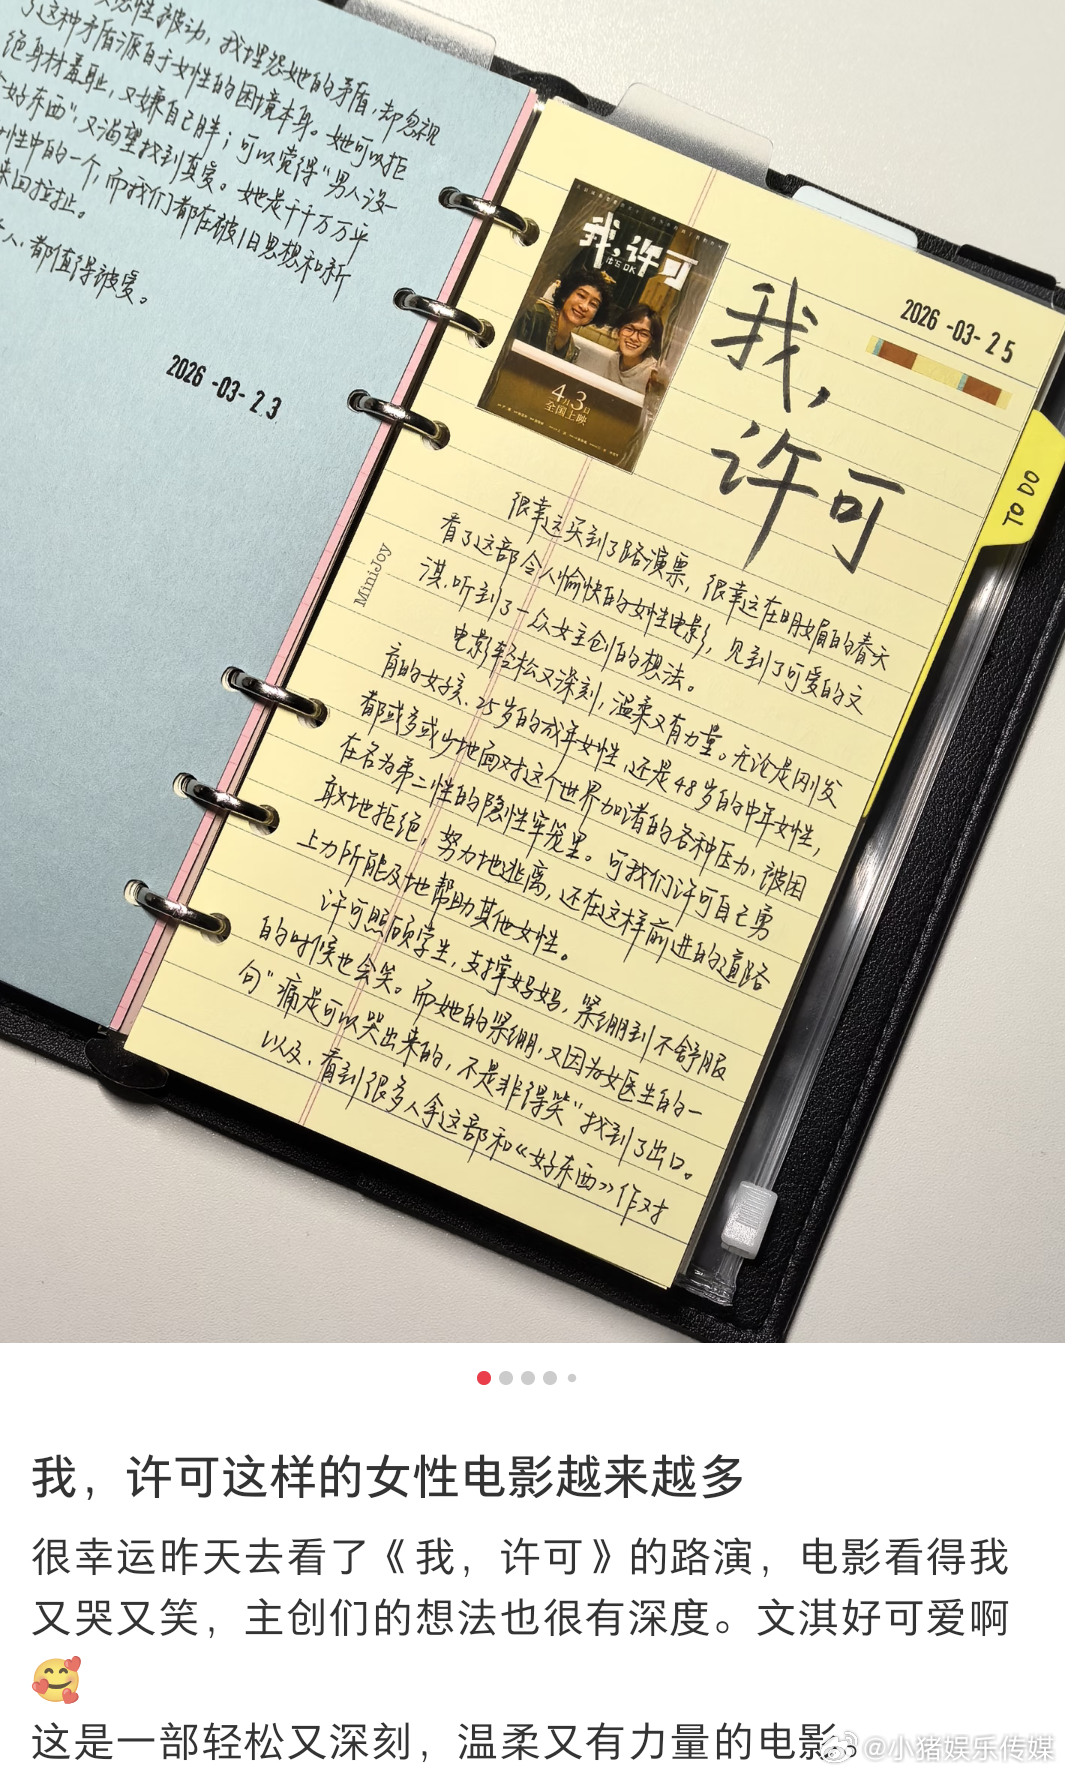 感性被动，我埋怨她的矛盾，却忽视
了这种矛盾源自于女性的困境本身。她可以拒
绝身材羞耻，又嫌自己胖；可以觉得“男人没一
个好东西”，又渴望找到真爱。她是千千万万平
性中的一个，而我们都在被旧思想和新
来回拉扯。
人，都值得被爱。
2026 -03- 2 3
我，许可
IT'S OK
4月3日
全国上映
2026 -03- 2 5
我，
许可
TO DO
MiniJoy
很幸运买到了路演票，很幸运在明媚的春天
看了这部令人愉快的女性电影，见到了可爱的文
淇，听到了一众女主创的想法。
电影轻松又深刻，温柔又有力量。无论是刚发
育的女孩、25岁的成年女性，还是48岁的中年女性，
都或多或少地面对这个世界加诸的各种压力，被困
在名为第二性的隐性牢笼里。可我们许可自己勇
敢地拒绝，努力地逃离，还在这样前进的道路
上力所能及地帮助其他女性。
许可照顾学生，支撑妈妈，紧绷到不舒服
的时候也会笑。而她的紧绷，又因为女医生的一
句“痛是可以哭出来的，不是非得笑”找到了出口。
以及，看到很多人拿这部和《好东西》作对
我，许可这样的女性电影越来越多
很幸运昨天去看了《我，许可》的路演，电影看得我
又哭又笑，主创们的想法也很有深度。文淇好可爱啊
🥰
这是一部轻松又深刻，温柔又有力量的电影。
@小猪娱乐传媒